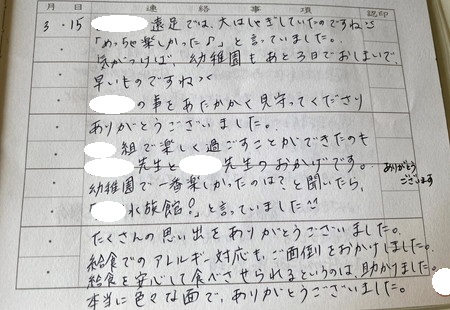 月 日 連 絡 事 項 認印
3 ・15 遠足では、大はしゃぎしていたのですね
「めっちゃ楽しかった♪」と言っていました。
気がつけば、幼稚園もあと3日でおしまいで、
早いものですね
の事をあたたかく見守ってくださり
ありがとうございました。
組で楽しく過ごすことができたのも
先生と 先生のおかげです。
幼稚園で一番楽しかったのは?と聞いたら、
「 水族館!」と言っていました^^
ありがとう
ございます
たくさんの思い出をありがとうございました。
給食でのアレルギー対応も、ご面倒をおかけしました。
給食を安心して食べさせられるというのは、助かりました。
本当に色々な面で、ありがとうございました。